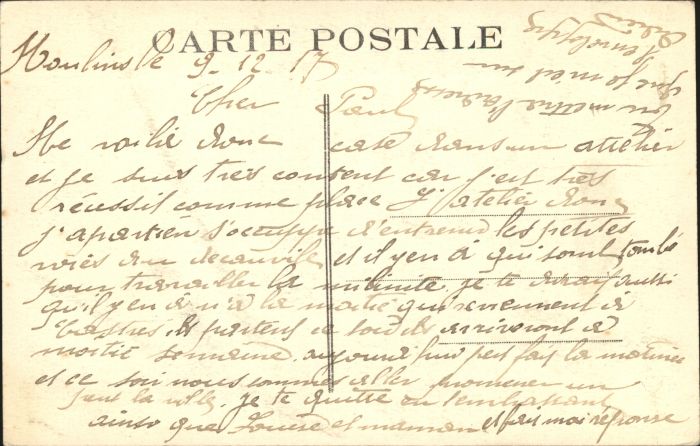 CARTE POSTALE
Moulins le 9-12-17
Cher Paul
Me voilié donc casé dans un attelier
et je suis très content car j'ai très
réussit comme place l'atelier donc
j'apartien s'occupe d'entrend les petites
voies du decauville et il y en à qui sont tombé
pour travailler la minute je te dirai aussi
qu'il y en à à la moitié qui reviennent à
Castres ils partent ce soir ils arriveront à
moitié semaine. aujourd'hui fait la matinée
et ce soir nous sommes aller promener un
dans la ville. je te quitte en t'embrassant
ainsi que Louise et maman et fais moi réponse
en mettre l'adresse
que je met sur
l'enveloppe